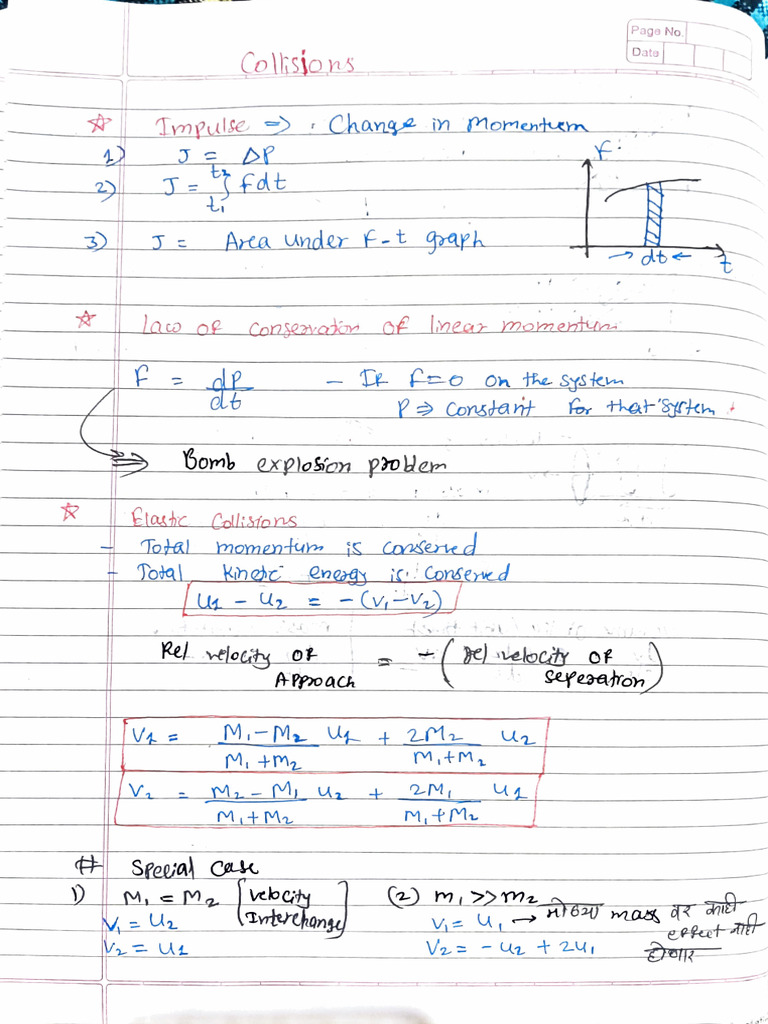 Page No.
Date
Collisions
☆ Impulse ⇒ Change in Momentum
1) J = ΔP
2) J = ∫ t₁ t₂ F dt
3) J = Area under F-t graph
F
→ dt ← t
☆ Law of conservation of linear momentum
F = dP/dt - If F=0 on the system
P ⇒ constant for that system
⇒ Bomb explosion problem
☆ Elastic Collisions
- Total momentum is conserved
- Total kinetic energy is conserved
U1 - U2 = -(V1-V2)
Rel velocity of Approach = - (rel velocity of seperation)
V1 = (M1-M2)/(M1+M2) U1 + 2M2/(M1+M2) U2
V2 = (M2-M1)/(M1+M2) U2 + 2M1/(M1+M2) U1
# Special Case
1) M1 = M2 [velocity Interchange]
V1 = U2
V2 = U1
(2) m1 >> m2
V1 = U1 → मोठ्या mass वर काही effect नाही होणार
V2 = -U2 + 2U1